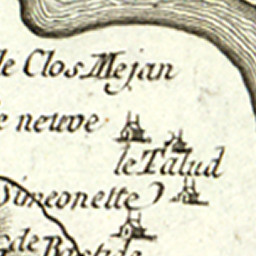 le Clos Mejan
e neuve
le Talud
Simeonette
de Bastide